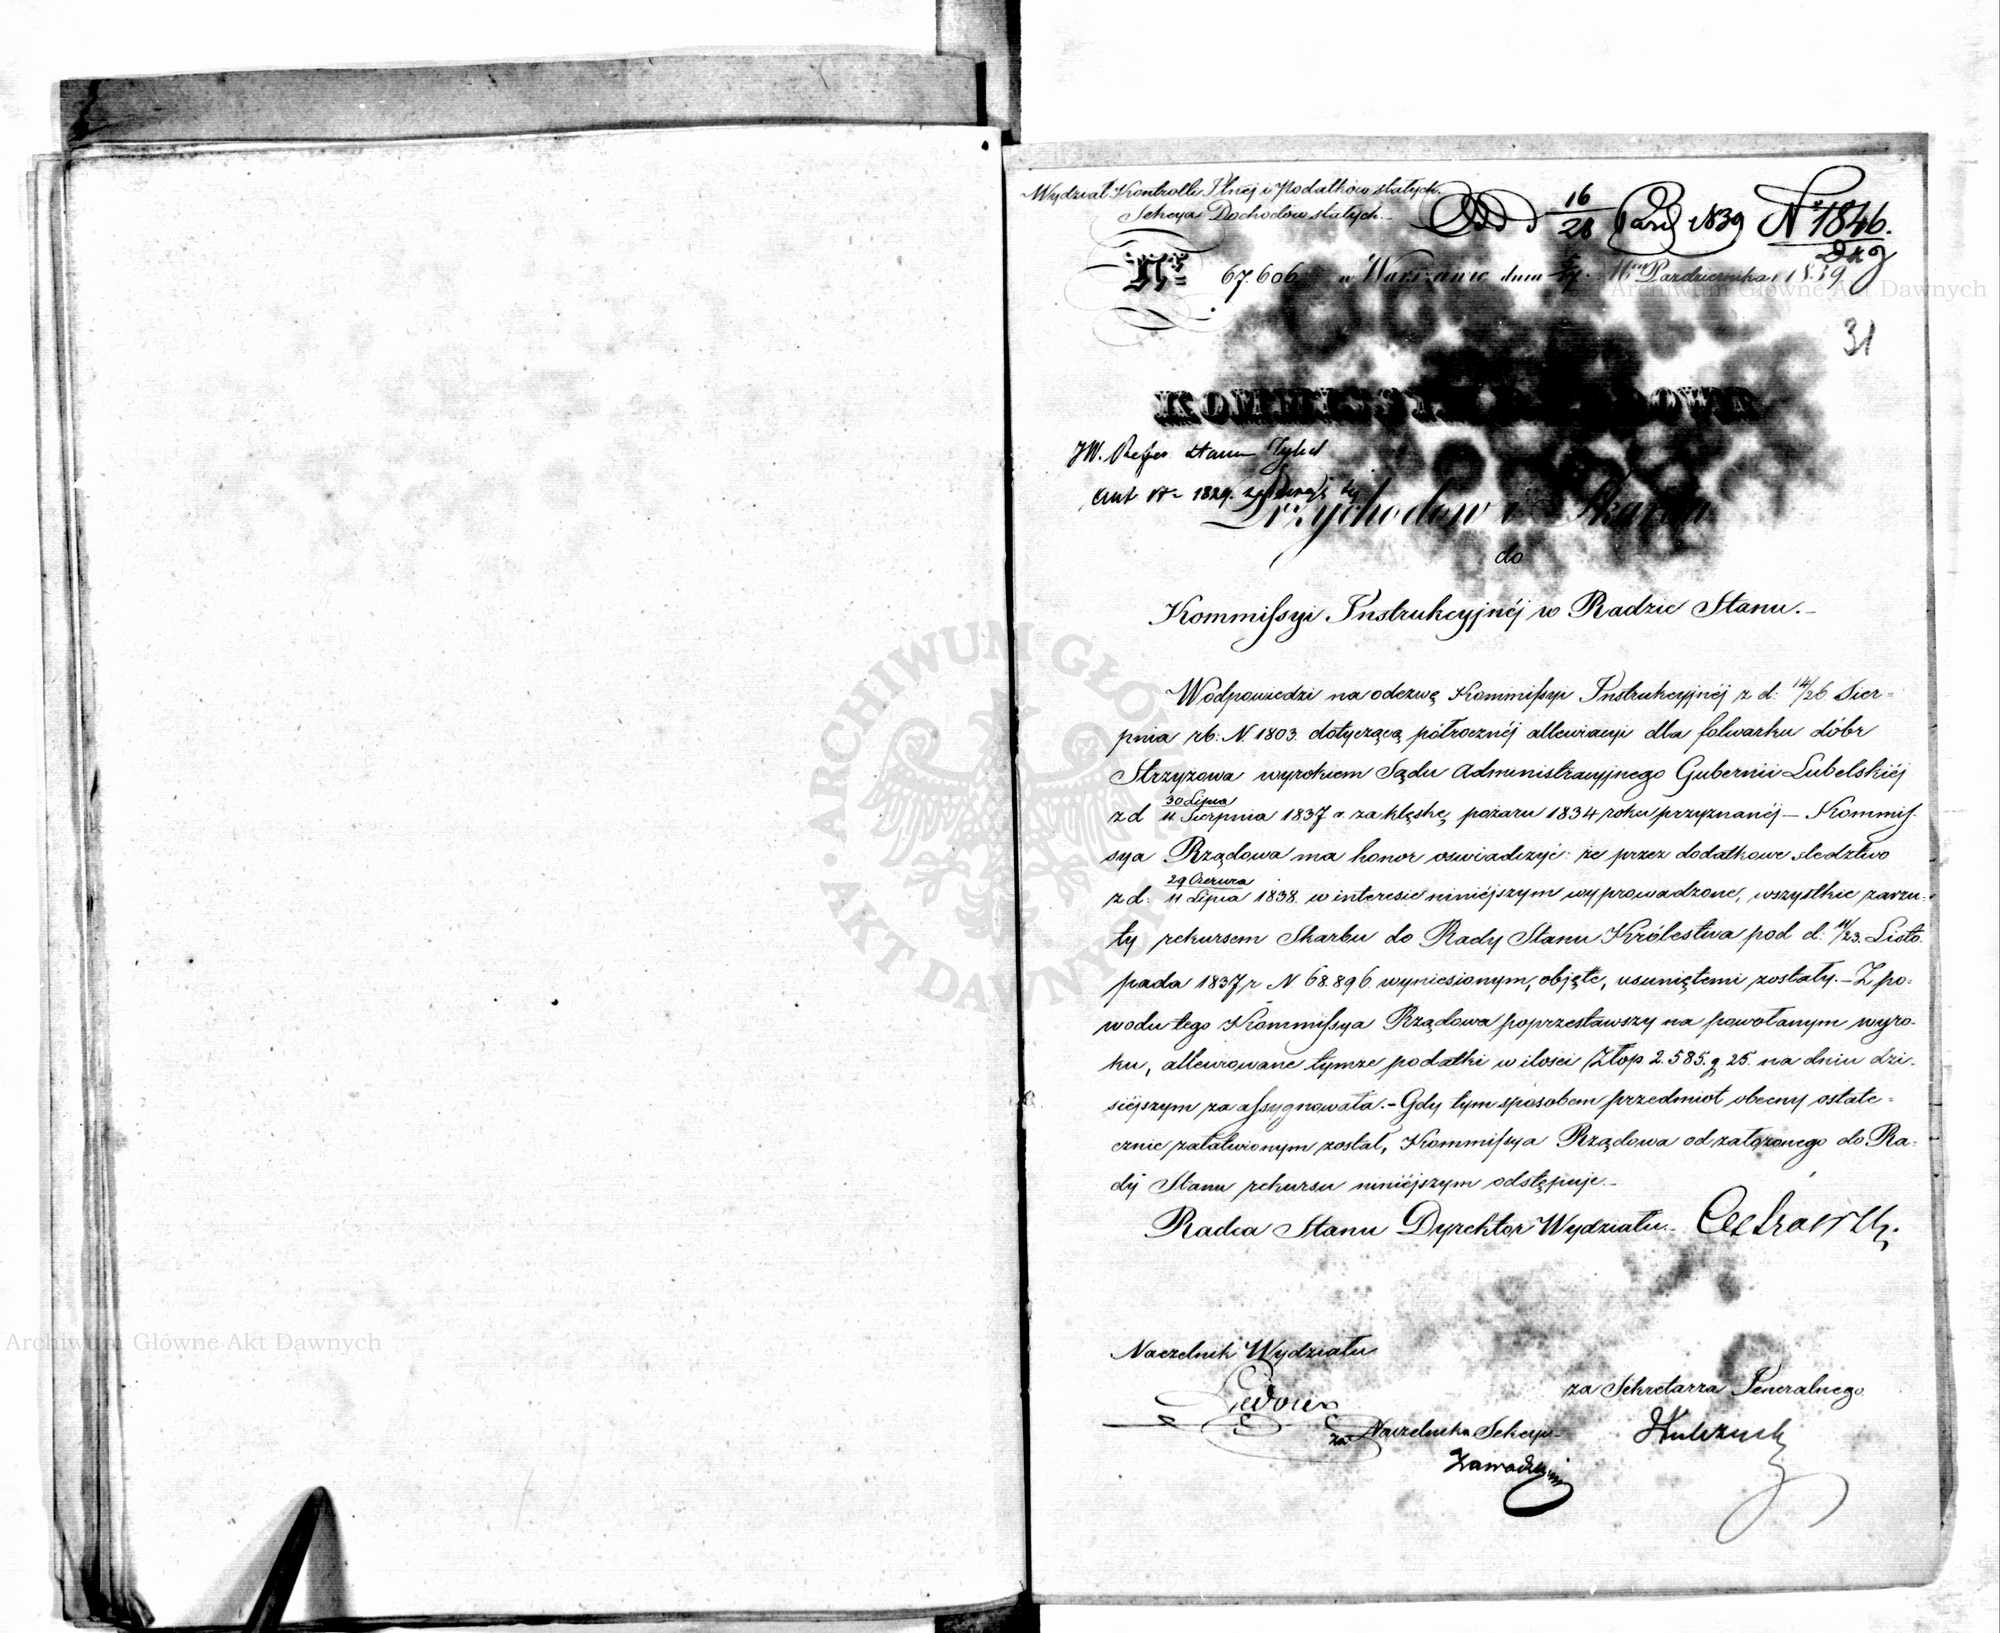 Wydział Kontrolli Ilnéj i Podatków stałych.
Sekcya Dochodów stałych.
DDd 16/28 Paźd 1839 Nº 1846.
Nº 67.606 w Warszawie dnia 16 Października 1839
31
JW. Refer. Stanu
Akt Nº 1829.
Przychodów i Skarbu
do
Kommissyi Instrukcyjnéj w Radzie Stanu.
W odpowiedzi na odezwę Kommissyi Instrukcyjnéj z d: 14/26 Sier=
pnia rb: N. 1803. dotyczącą półrocznéj allewiacyi dla folwarku dóbr
Strzyżowa wyrokiem Sądu Administracyjnego Gubernii Lubelskiéj
z d 30 Lipca/11 Sierpnia 1837 r. za klęskę pożaru 1834 roku przyznanéj – Kommis=
sya Rządowa ma honor oswiadczyć: że przez dodatkowe śledztwo
z d: 29 Czerwca/11 Lipca 1838. w interesie niniéjszym wyprowadzone, wszystkie zarzu=
ty rekursem Skarbu do Rady Stanu Królestwa pod d: 11/23. Listo=
pada 1837 r N 68.896 wyniesionym, objęte, usuniętemi zostały. – Z po=
wodu tego Kommissya Rządowa poprzestawszy na powołanym wyro=
ku, allewiowane tymże podatki w ilości Złop 2.585. g 25. na dniu dzi=
siéjszym za assygnowała. – Gdy tym sposobem przedmiot obecny ostate=
cznie załatwionym został, Kommissya Rządowa od założonego do Ra=
dy Stanu rekursu niniéjszym odstępuje. –
Radca Stanu Dyrektor Wydziału
Naczelnik Wydziału
za Sekretarza Jeneralnego
za Naczelnika Sekcyi